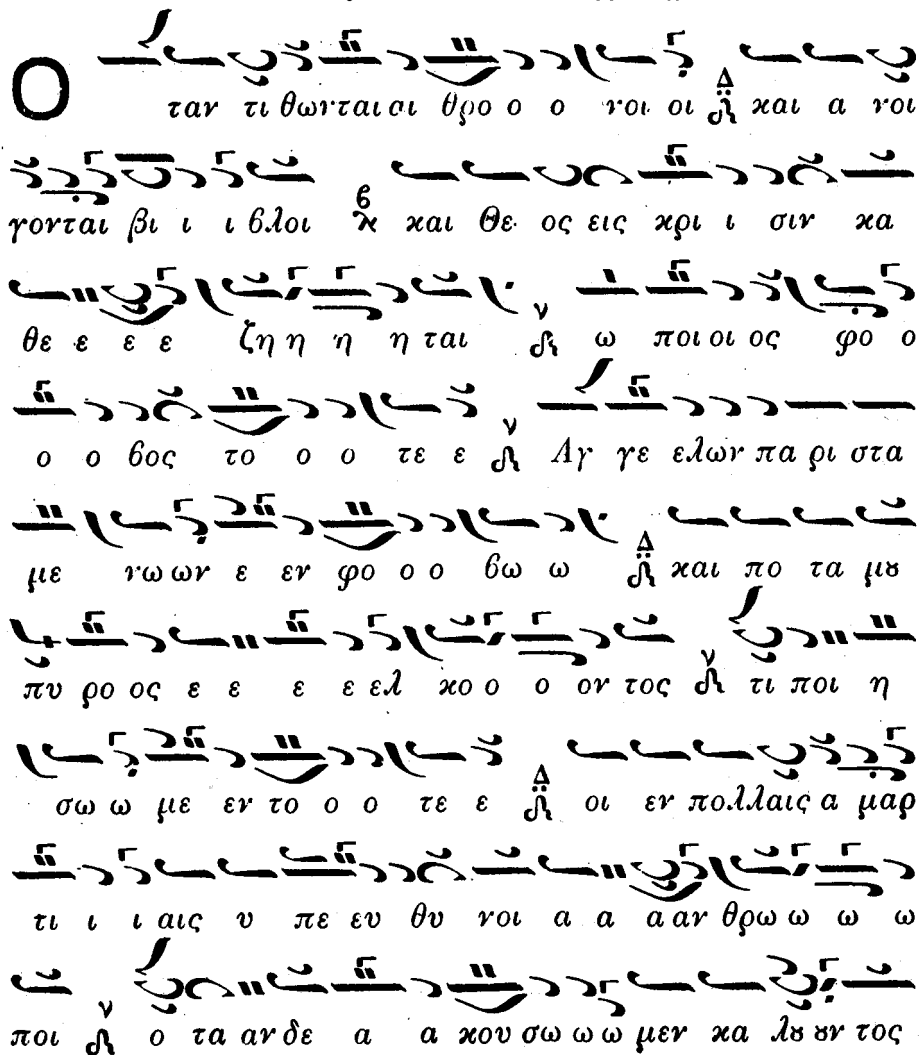 Ο ταν τι θωνται αι θρο ο ο νοι οι Δ και α νοι
γονται βι ι ι βλοι και Θε ος εις κρι ι σιν κα
θε ε ε ε ζη η η η ται ν ω ποι οι ος φο ο
ο ο βος το ο ο τε ε ν Αγ γε ελων πα ρι στα
με νω ων ε εν φο ο ο βω ω Δ και πο τα μȣ
πυ ρο ος ε ε ε ε ελ κο ο ο ον τος ν τι ποι η
σω ω με εν το ο ο τε ε Δ οι εν πολλαις α μαρ
τι ι ι αις υ πε ευ θυ νοι α α α αν θρω ω ω ω
ποι ν ο τα αν δε α α κου σω ω ω μεν κα λȣ ȣν τος